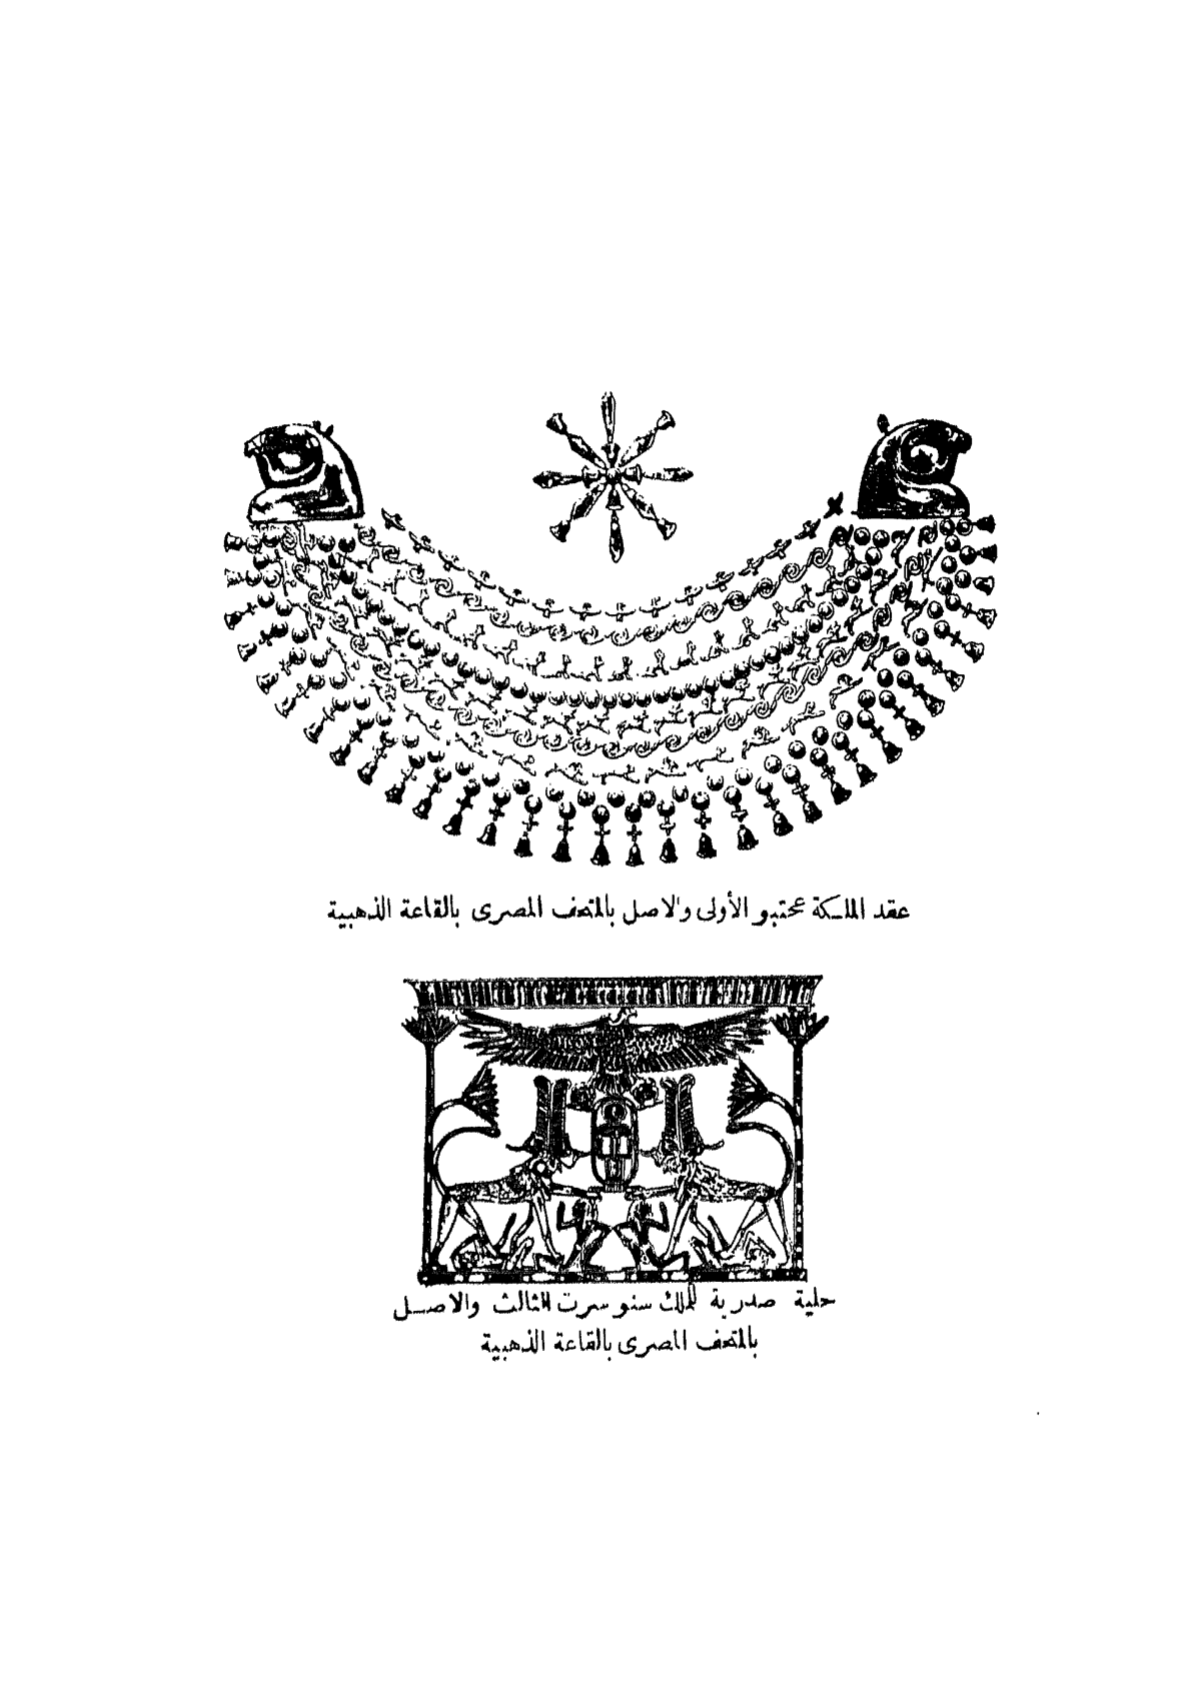 عقد الملكة عحتبو الأولى والاصل بالمتحف المصرى بالقاعة الذهبية
حلية صدرية للملك سنوسرت الثالث والاصل
بالمتحف المصرى بالقاعة الذهبية